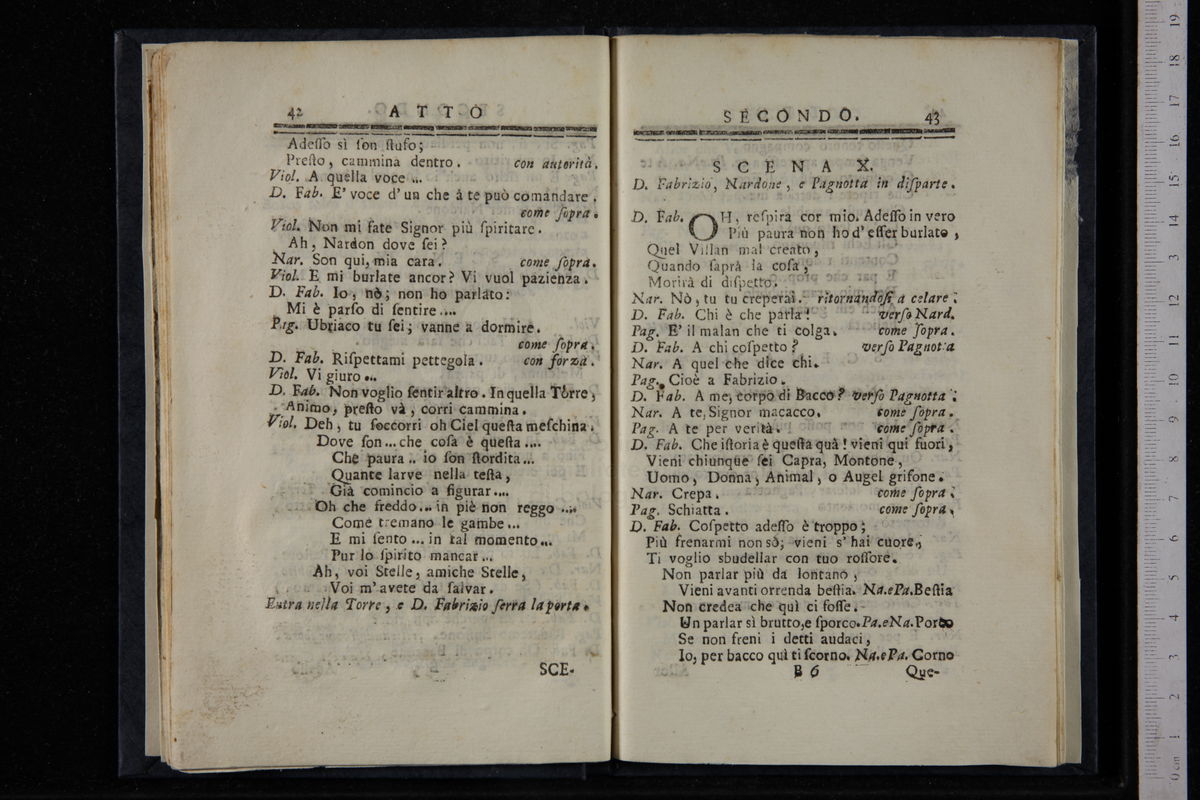 42 ATTO
Adeſſo sì ſon ſtufo;
Preſto, cammina dentro. con autorità.
Viol. A quella voce ...
D. Fab. E' voce d'un che à te può comandare.
come ſopra.
Viol. Non mi fate Signor più ſpiritare.
Ah, Nardon dove ſei?
Nar. Son qui, mia cara. come ſopra.
Viol. E mi burlate ancor? Vi vuol pazienza.
D. Fab. Io, nò; non ho parlato:
Mi è parſo di ſentire....
Pag. Ubriaco tu ſei; vanne a dormire.
come ſopra.
D. Fab. Riſpettami pettegola. con forza.
Viol. Vi giuro ...
D. Fab. Non voglio ſentir altro. In quella Tòrre,
Animo, preſto và, corri cammina.
Viol. Deh, tu ſoccorri oh Ciel queſta meſchina.
Dove ſon...che coſa è queſta....
Che paura.. io ſon ſtordita...
Quante larve nella teſta,
Già comincio a figurar....
Oh che freddo... in piè non reggo ....
Come tremano le gambe...
E mi ſento ... in tal momento...
Pur lo ſpirito mancar...
Ah, voi Stelle, amiche Stelle,
Voi m'avete da ſalvar.
Entra nella Torre, e D. Fabrizio ſerra la porta.
SCE-
SECONDO. 43
SCENA X.
D. Fabrizio, Nardone, e Pagnotta in diſparte.
D. Fab. OH, reſpira cor mio. Adeſſo in vero
Più paura non ho d'eſſer burlato,
Quel Villan mal creato,
Quando ſaprà la coſa,
Morirà di diſpetto.
Nar. Nò, tu tu creperai. ritornandoſi a celare.
D. Fab. Chi è che parla! verſo Nard.
Pag. E' il malan che ti colga. come ſopra.
D. Fab. A chi coſpetto? verſo Pagnotta
Nar. A quel che dice chi.
Pag. Cioè a Fabrizio.
D. Fab. A me, corpo di Bacco? verſo Pagnotta.
Nar. A te, Signor macacco. come ſopra.
Pag. A te per verità. come ſopra.
D. Fab. Che iſtoria è queſta quà! vieni qui fuori,
Vieni chiunque ſei Capra, Montone,
Uomo, Donna, Animal, o Augel grifone.
Nar. Crepa. come ſopra.
Pag. Schiatta. come ſopra.
D. Fab. Coſpetto adeſſo è troppo;
Più frenarmi non sò; vieni s'hai cuore,
Ti voglio sbudellar con tuo roſſore.
Non parlar più da lontano,
Vieni avanti orrenda beſtia. Na.ePa. Beſtia
Non credea che quì ci foſſe.
Un parlar sì brutto,e ſporco. Pa.eNa. Porco
Se non freni i detti audaci,
Io, per bacco quì ti ſcorno. Na.ePa. Corno
B 6 Que-